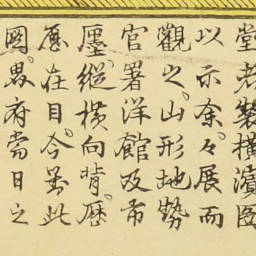 堂老製横濱図
以示余々展而
觀之。山形地勢
官署洋館及市
廛。縱橫向背。歷
歷在目。今此
圖。府當日之